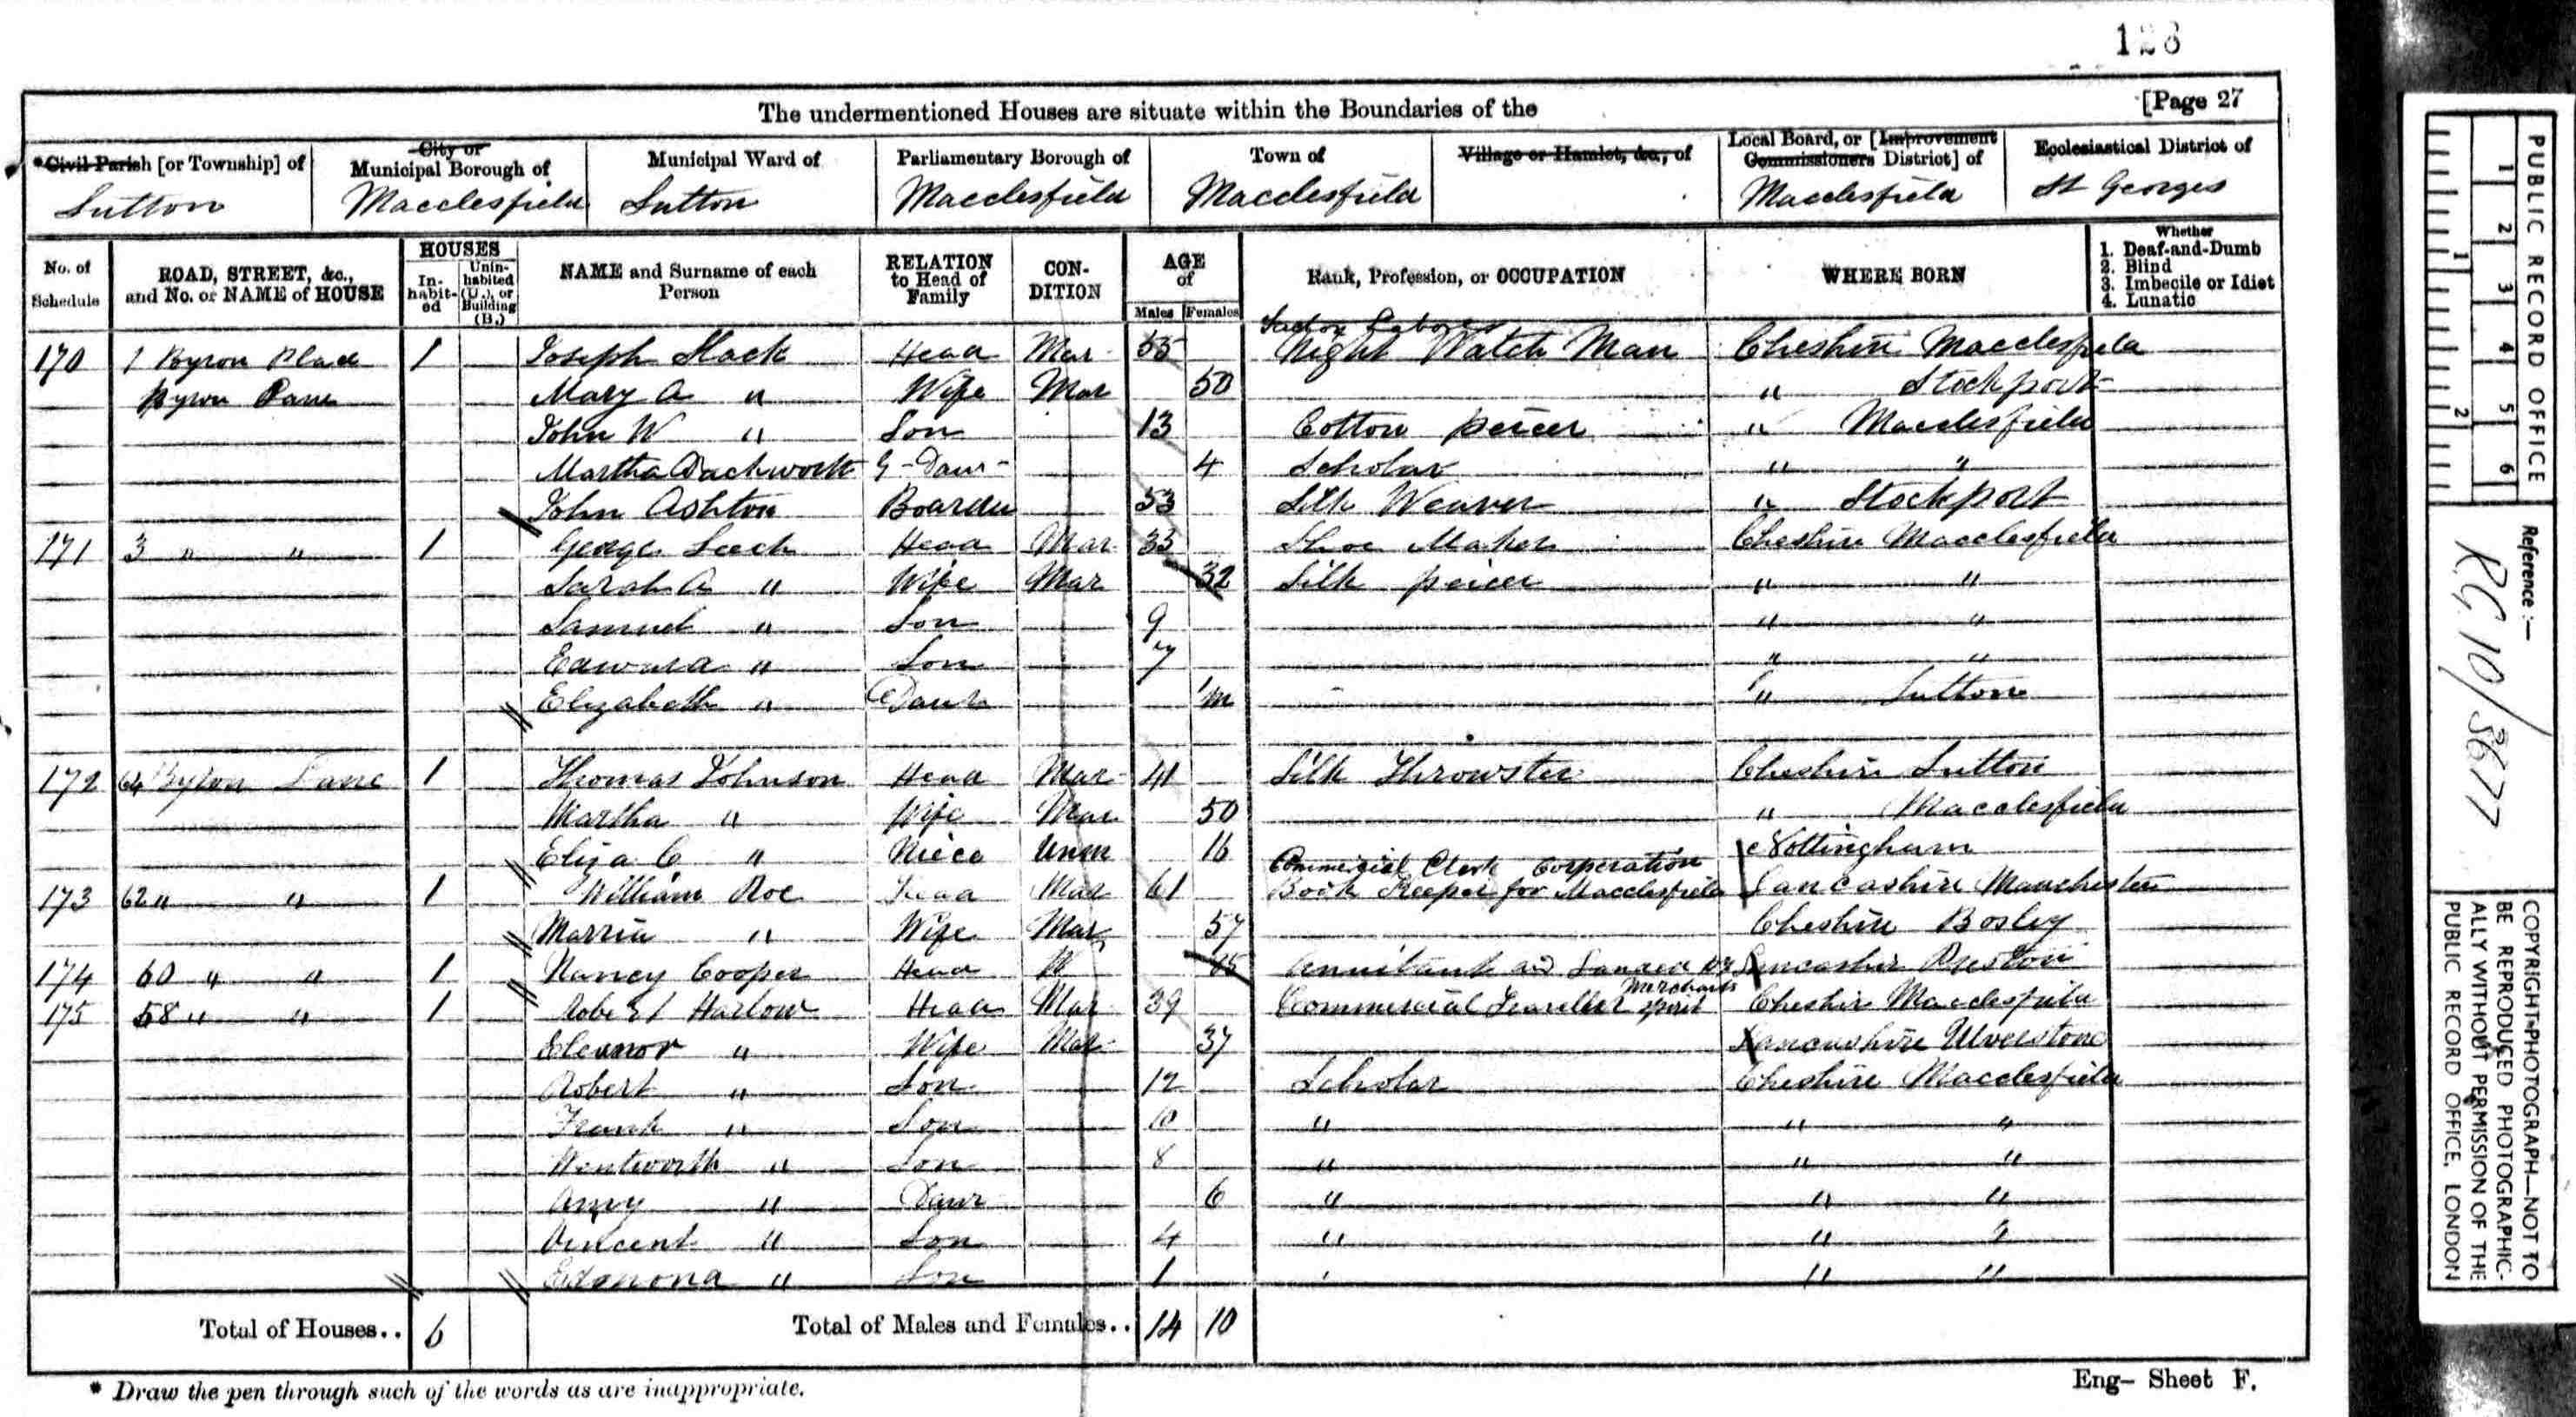 128
The undermentioned Houses are situate within the Boundaries of the [Page 27
*Civil Parish [or Township] of City or Municipal Borough of Municipal Ward of Parliamentary Borough of Town of Village or Hamlet, &c., of Local Board, or [Improvement Commissioners District] of Ecclesiastical District of
Sutton Macclesfield Sutton Macclesfield Macclesfield Macclesfield St Georges
No. of Schedule ROAD, STREET, &c., and No. or NAME of HOUSE HOUSES Inhabited Uninhabited (U.), or Building (B.) NAME and Surname of each Person RELATION to Head of Family CONDITION AGE of Males Females Rank, Profession, or OCCUPATION WHERE BORN Whether 1. Deaf-and-Dumb 2. Blind 3. Imbecile or Idiot 4. Lunatic
170 1 Byron Place 1 Joseph Slack Head Mar 55 Night Watch Man Cheshire Macclesfield
Byron Mary A " Wife Mar 50 " Stockport
John W " Son 13 Cotton peicer " Macclesfield
Martha Dackworth G-Daur- 4 Scholar " "
John Ashton Boarder 53 Silk Weaver " Stockport
171 3 " " 1 George Leech Head Mar 33 Shoe Maker Cheshire Macclesfield
Sarah A " Wife Mar 32 Silk peicer " "
Samuel " Son 9 " "
Edward " Son 7 " "
Elizabeth " Daur 1m " Sutton
172 64 Byron Lane 1 Thomas Johnson Head Mar 41 Silk Throwster Cheshire Sutton
Martha " Wife Mar 50 " Macclesfield
Eliza C " Niece Unm 16 Nottingham
173 62 " " 1 William Roe Head Mar 61 Commercial Clerk Corperation Book Keeper for Macclesfield Lancashire Manchester
Marria " Wife Mar 57 Cheshire Bosley
174 60 " " 1 Nancy Cooper Head W Annuitant and Lancashire Preston
175 58 " " 1 Robert Harlow Head Mar 39 Commercial Traveller Spirit Merchants Cheshire Macclesfield
Eleanor " Wife Mar 37 Lancashire Ulverstone
Robert " Son 12 Scholar Cheshire Macclesfield
Frank " Son 10 " " "
Wentworth " Son 8 " " "
Amy " Daur 6 " " "
Vincent " Son 4 " " "
Edmond " Son 1 " "
Total of Houses.. 6 Total of Males and Females.. 14 10
* Draw the pen through such of the words as are inappropriate. Eng- Sheet F.
PUBLIC RECORD OFFICE
1 2 3 4 5 6
1 2
Reference :-
RG 10/3677
COPYRIGHT PHOTOGRAPH—NOT TO
BE REPRODUCED PHOTOGRAPHIC-
ALLY WITHOUT PERMISSION OF THE
PUBLIC RECORD OFFICE, LONDON